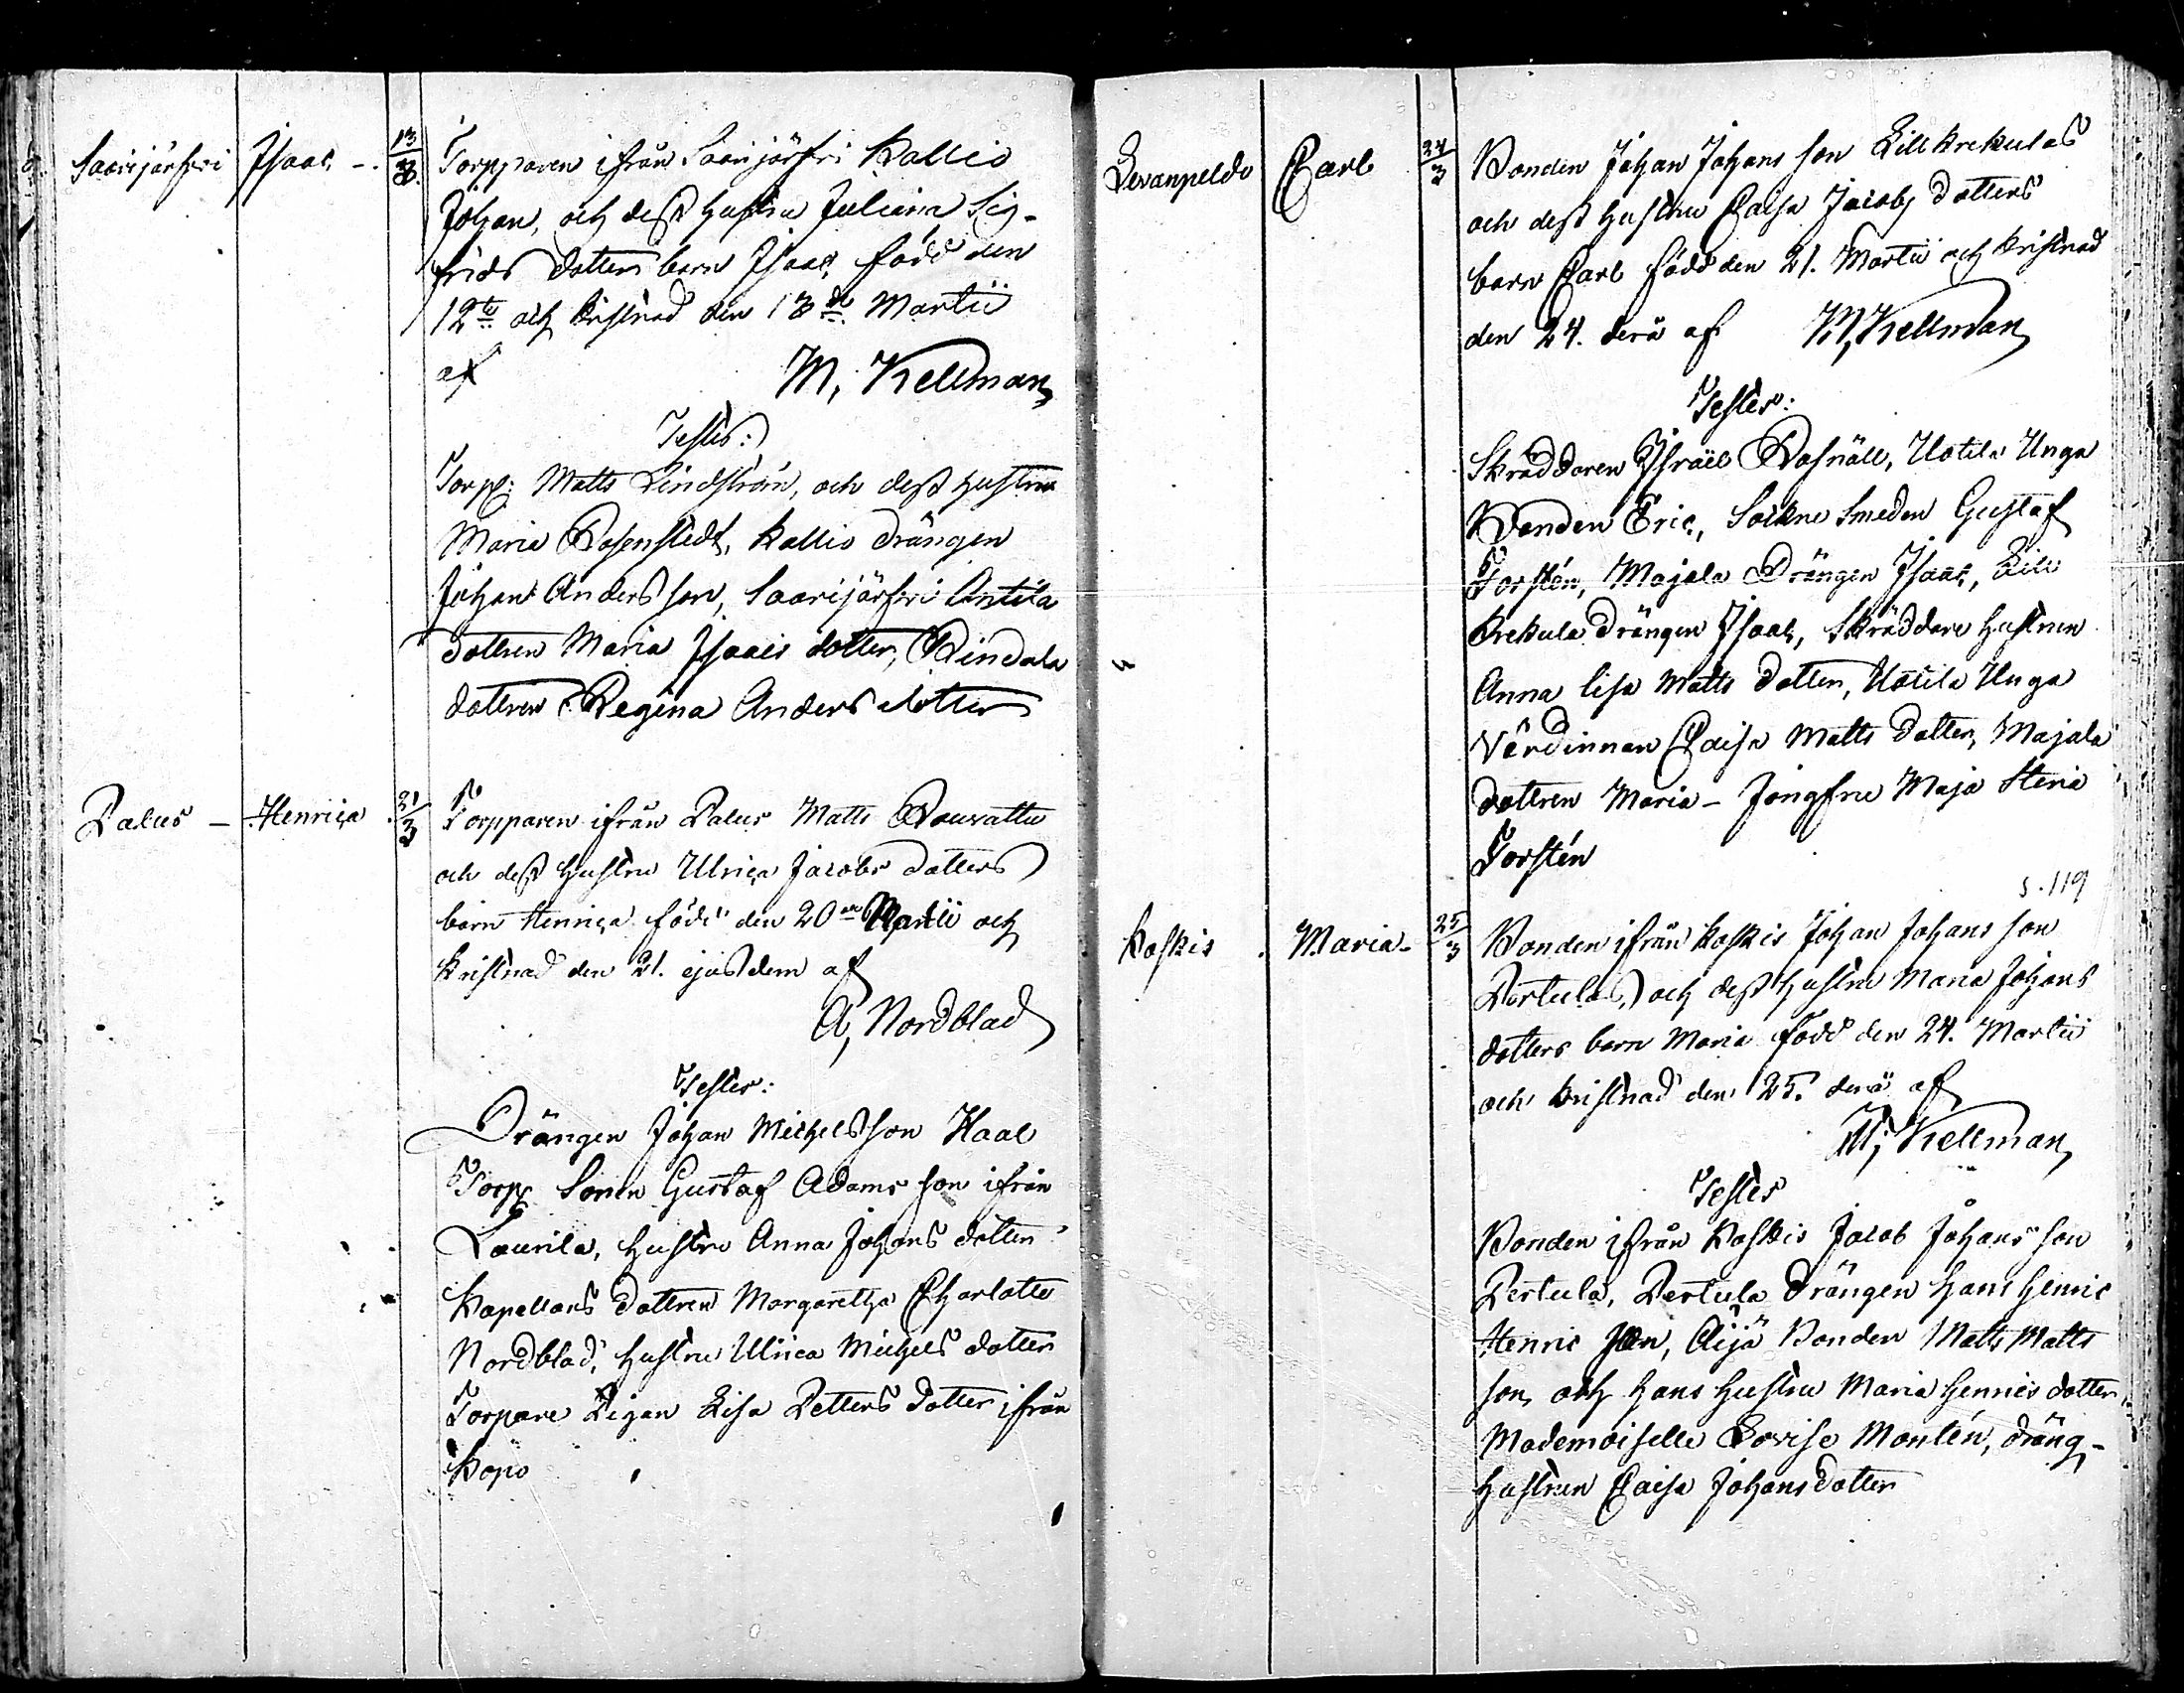 Saarijärfvi Isaac - 13/3 Torpparen ifrån Saarijärfvi Kallio
Johan, och dess hustru Juliana Sig-
frids dotters barn Isaac, född den
12te och kristnad den 13de Martii
af M. Kellman
Testes:
Torp: Matts Lindström, och dess hustru
Maria Rosenstedt, Kallio drängen
Johan Anders son, Saarijärfvi Antila
dottren Maria Isaacs dotter, Rindala
dottren Regina Anders dotter
Palus - Henrica 21/3 Torpparen ifrån Palus Matts Rouvattu
och dess hustru Ulrica Jacobs dotters
barn Henrica född den 20de Martii och
kristnad den 21. ejusdem af
A, Nordblad
Testes:
Drängen Johan Michels son Haal
Torp Sonen Gustaf Adams son ifrån
Laurila, hustru Anna Johans dotter
Kapellans dottren Margaretha Charlotta
Nordblad, hustru Ulrica Michels dotter
Torpare Pigan Lisa Petters dotter ifrån
Kopo
Levanpeldo Carl 24/3 Bonden Johan Johans son Lillkrekulas
och dess hustru Caisa Jacobs dotters
barn Carl född den 21. Martii och kristnad
den 24. derå af M, Kellman
Testes:
Skräddaren Israel Rosnäll, Uotila Unga
Bonden Eric, Sockne Smeden Gustaf
Torstén, Majala Drängen Isaac, Lill
Krekula drängen Isaac, Skräddare hustrun
Anna Lisa Matts dotter, Uotila Unga
Värdinnan Caisa Matts dotter, Majala
dottren Maria - Jungfru Maja Stina
Torstén
s. 119
Koskis Maria - 25/3 Bonden ifrån Koskis Johan Johans son
Pertulas, och dess hustru Maria Johans
dotters barn Maria född den 24. Martii
och kristnad den 25. derå af
M, Kellman
Testes
Bonden ifrån Koskis Jacob Johans son
Pertula, Pertula drängen Hans Henric
Henric son, Äijä Bonden Matts Matts
son, och hans hustru Maria Henrics dotter
Mademoiselle Lovisa Montén, dräng-
hustrun Caisa Johans dotter